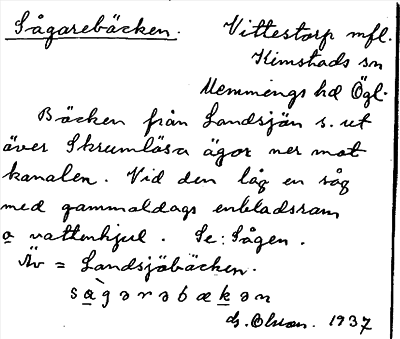 Sågarebäcken.
Vittestorp mfl.
Kimstads sn
Memmings hd Ögl.
Bäcken från Landsjön s. ut
över Skrumlösa ägor ner mot
kanalen. Vid den låg en såg
med gammaldags enbladsram
o vattenhjul. Se: Sågen.
Äv = Landsjöbäcken.
sàgərəbækən
G. Olson. 1937